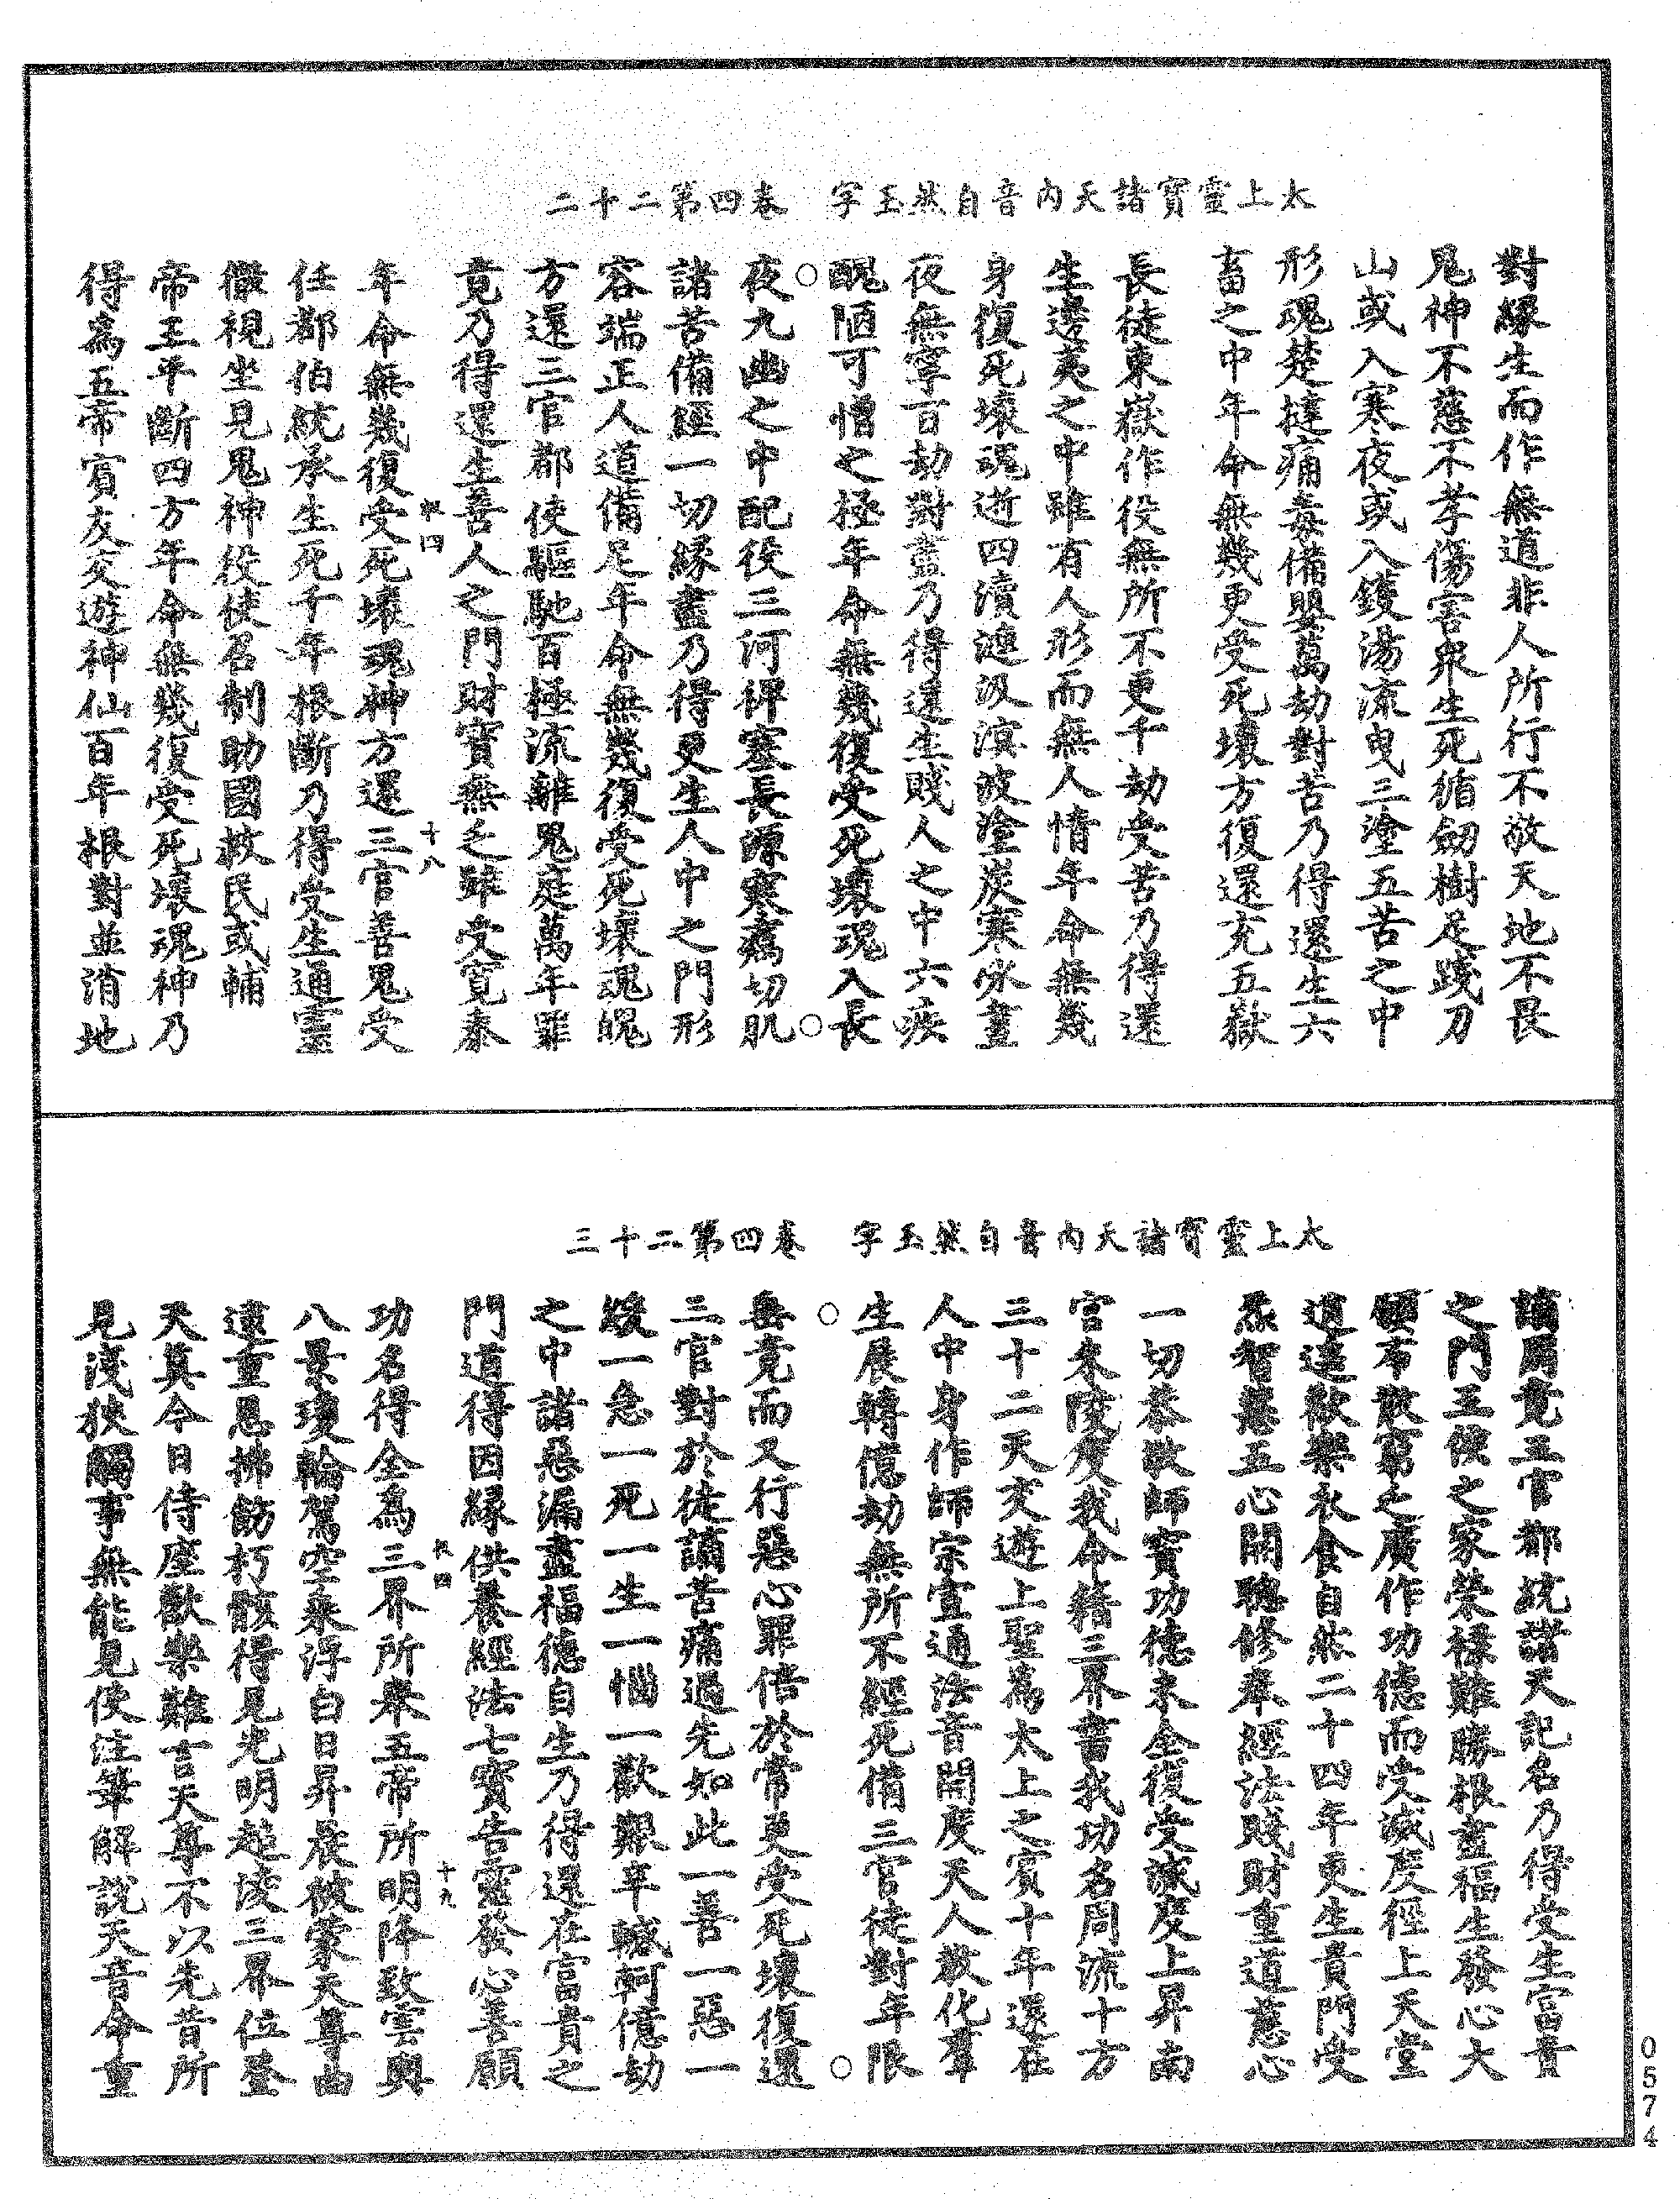 太上靈寶諸天內音自然玉字　卷四第二十二
對緣生而作無道非人所行不敬天地不畏
鬼神不慈不孝傷害眾生死循劒樹足踐刀
山或入寒夜或入鑊湯流曳三塗五苦之中
形魂楚撻痛毒備嬰萬劫對苦乃得還生六
畜之中年命無幾更受死壞方復還充五獄
長徒東嶽作役無所不更千劫受苦乃得還
生邊夷之中雖有人形而無人情年命無幾
身復死壞魂逝四瀆遞汲溟波塗炭寒氷晝
夜無寧百劫對盡乃得還生賤人之中六疾
醜陋可憎之極年命無幾復受死壞魂入長
夜九幽之中配役三河捍塞長源寒癘切肌
諸苦備經一切緣盡乃得更生人中之門形
容端正人道備足年命無幾復受死壞魂醜
方還三官都使驅馳百極流離鬼庭萬年罪
竟乃得還生善人之門財寶無乏雖受寬泰
年命無幾復受死壞魂神方還三官善鬼受
任都伯統承生死千年根斷乃得受生通靈
徹視坐見鬼神役使召制助國救民或輔
帝王平斷四方年命無幾復受死壞魂神乃
得為五帝賓友交遊神仙百年根對並消地
太上靈寶諸天內音自然玉字　卷四第二十三
讁爾竟五官都統諸天記名乃得受生富貴
之門王侯之家榮祿難勝根盡福生發心大
願布散窮乏廣作功德而受滅度徑上天堂
逍遙歡樂衣食自然二十四年更生貴門受
炁智慧五心開聰修奉經法賤財重道慈心
一切恭敬師寶功德未全復受滅度上昇南
宮朱陵度我命籍三界書我功名周流十方
三十二天交遊上聖為太上之賓十年還在
人中身作師宗宣通法音開度天人教化羣
生展轉億劫無所不經死備三官徒對年限
無竟而又行惡心罪倍於常更受死壞復還
三官對於徒讁苦痛過先如此一善一惡一
緩一急一死一生一惱一歡艱辛轗軻億劫
之中諸惡漏盡福德自生乃得還在富貴之
門道得因緣供養經法七寶告靈發心善願
功名得全為三界所舉五帝所明降致雲輿
八景瓊輪駕空乘浮白日昇晨彼蒙天尊曲
遠重恩拂飭朽骸得見光明超陵三界位登
天真今日侍座歡樂難言天尊不以先昔所
見淺狹觸事無能見使注筆解說天音命重
敷四
十八
敷四
十九
0574